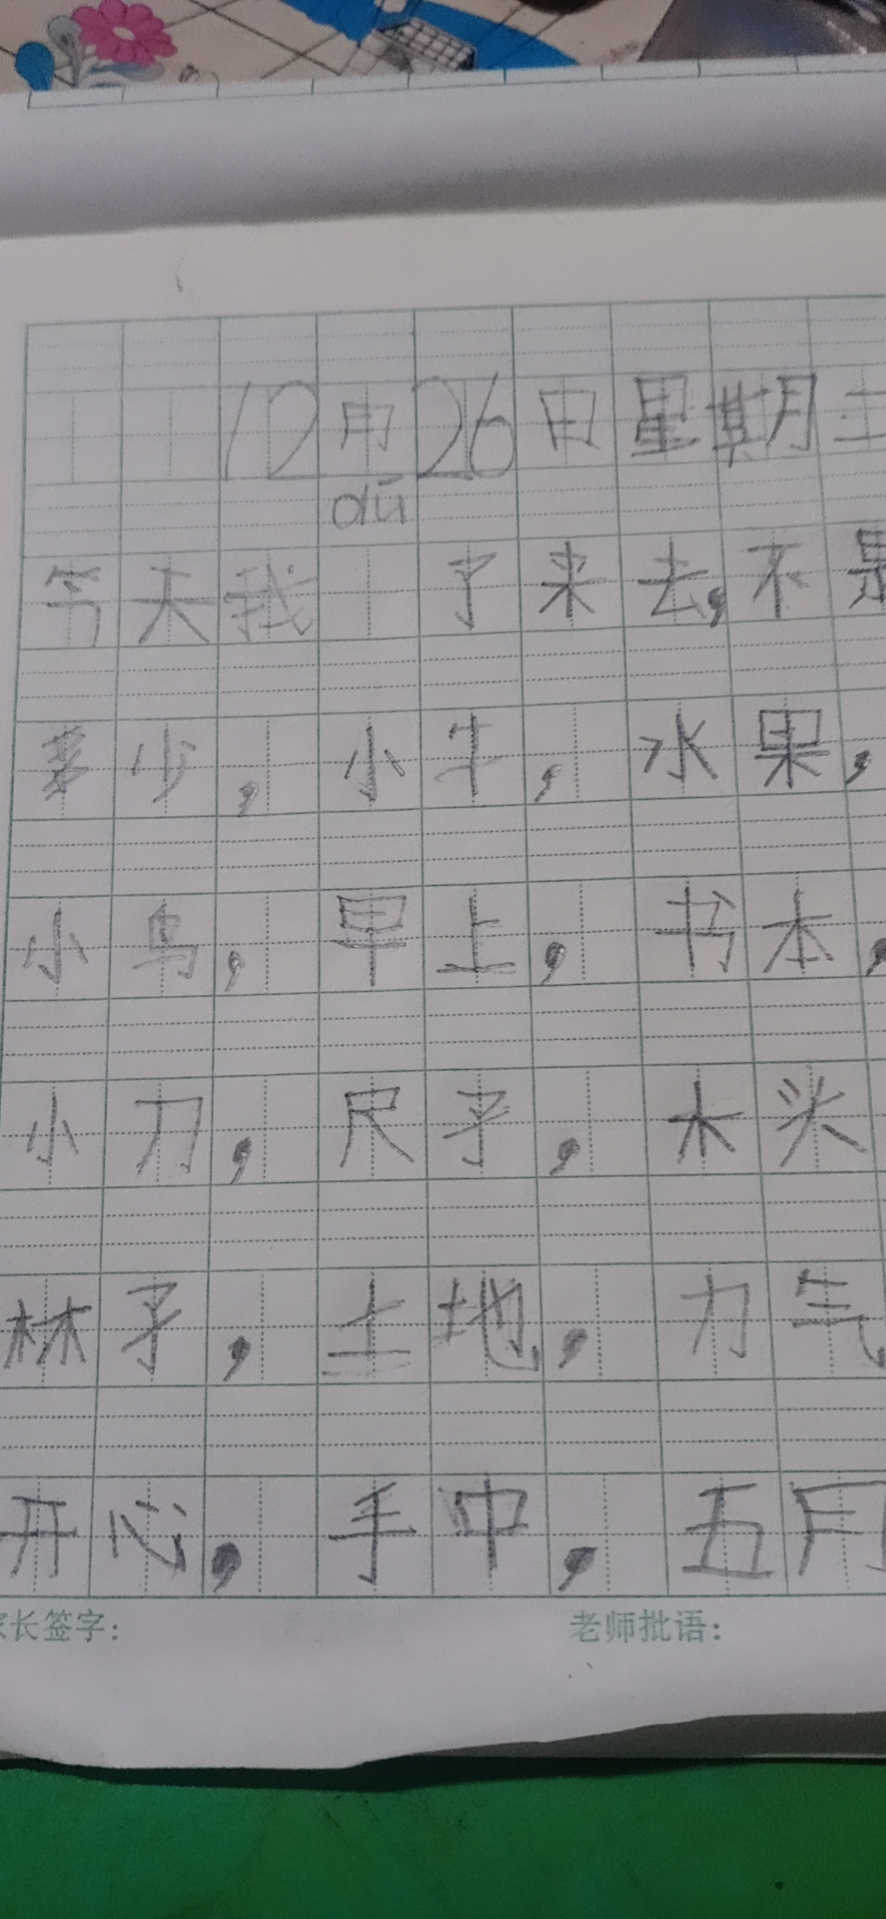 12月26日星期
dú
今天我 了来去,不是
多少,小牛,水果,
小鸟,早上,书本,
小刀,尺子,木头
林子,土地,力气
开心,手中,五月
长签字: 老师批语: